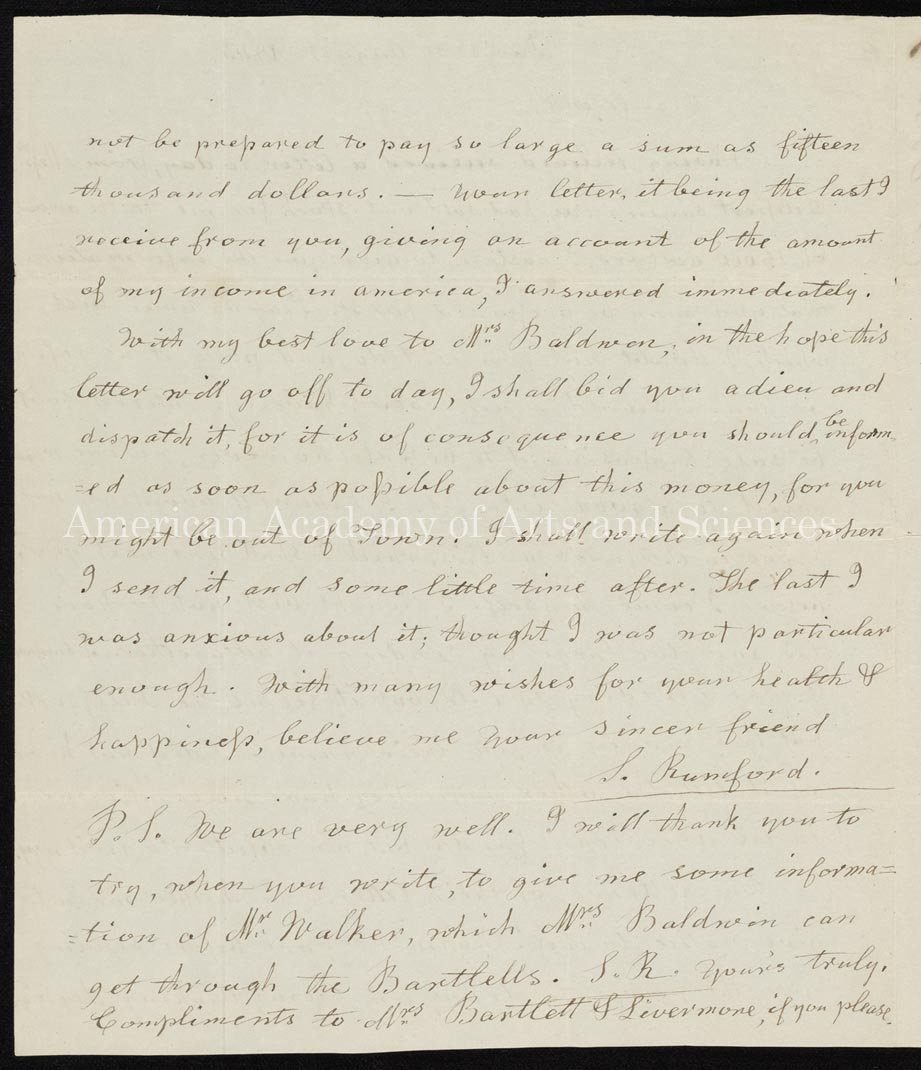 not be prepared to pay so large a sum as fifteen
thousand dollars. — your letter, it being the last I
receive from you, giving an account of the amount
of my income in america, I answered immediately.
With my best love to Mrs Baldwin, in the hope this
letter will go off to day, I shall bid you adieu and
dispatch it, for it is of consequence you should be inform
=ed as soon as poſsible about this money, for you
American Academy of Arts and Sciences
might be out of Town. I shall write again when
I send it, and some little time after. The last I
was anxious about it; thought I was not particular
enough. With many wishes for your health &
happineſs, believe me your sincer friend
S. Rumford.
P.S. We are very well. I will thank you to
try, when you write, to give me some informa=
=tion of Mr Walker, which Mrs Baldwin can
get through the Bartletts. S.R. yours truly.
Compliments to Mrs Bartlett & Livermore, if you please.